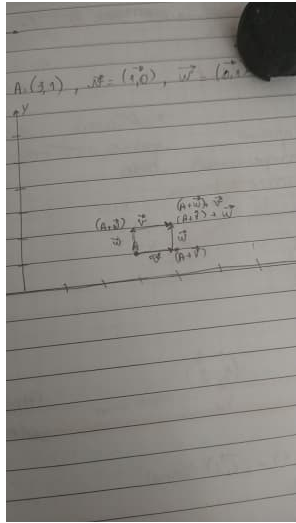 A=(3,1), v⃗=(1,0), w⃗=(0,1
y
(A+w⃗) v⃗ (A+w⃗)+v⃗
(A+v⃗)+w⃗
w⃗ w⃗
A v⃗ (A+v⃗)